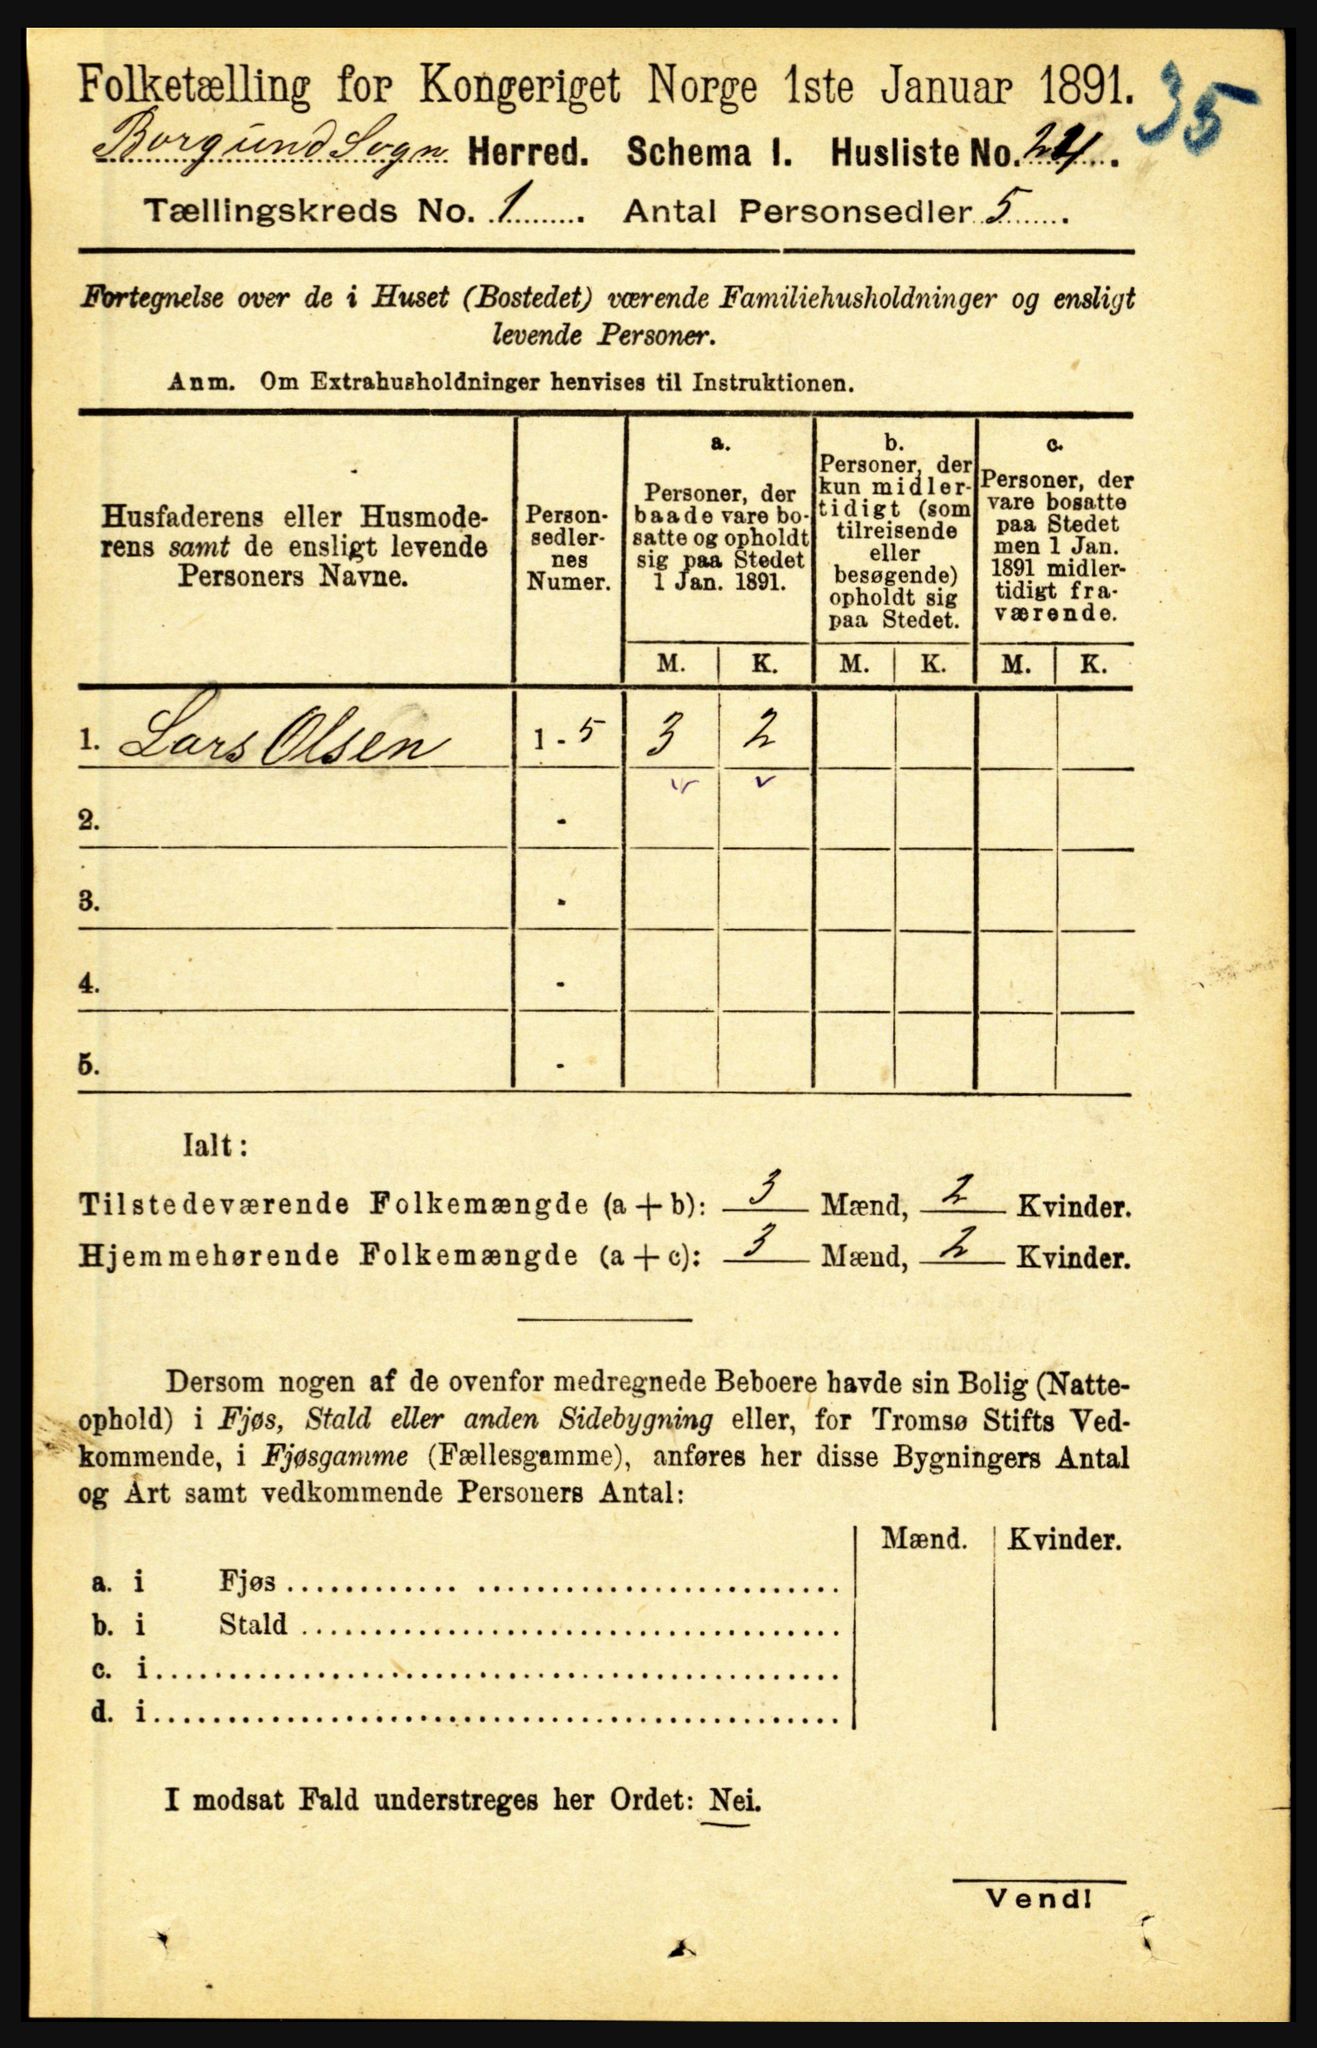 Folketælling for Kongeriget Norge 1ste Januar 1891. 35
Borgund Sogn Herred. Schema I. Husliste No. 24.
Tællingskreds No. 1. Antal Personsedler 5.
Fortegnelse over de i Huset (Bostedet) værende Familiehusholdninger og ensligt
levende Personer.
Anm. Om Extrahusholdninger henvises til Instruktionen.
Husfaderens eller Husmode-
rens samt de ensligt levende
Personers Navne.
Person-
sedler-
nes
Numer.
a.
Personer, der
baade vare bo-
satte og opholdt
sig paa Stedet
1 Jan. 1891.
b.
Personer, der
kun midler-
tidigt (som
tilreisende
eller
besøgende)
opholdt sig
paa Stedet.
c.
Personer, der
vare bosatte
paa Stedet
men 1 Jan.
1891 midler-
tidigt fra-
værende.
M. K. M. K. M. K.
1. Lars Olsen 1 - 5 3 2
2. -
3. -
4. -
5. -
Ialt:
Tilstedeværende Folkemængde (a + b): 3 Mænd, 2 Kvinder.
Hjemmehørende Folkemængde (a + c): 3 Mænd, 2 Kvinder.
Dersom nogen af de ovenfor medregnede Beboere havde sin Bolig (Natte-
ophold) i Fjøs, Stald eller anden Sidebygning eller, for Tromsø Stifts Ved-
kommende, i Fjøsgamme (Fællesgamme), anføres her disse Bygningers Antal
og Art samt vedkommende Personers Antal:
Mænd. Kvinder.
a. i Fjøs
b. i Stald
c. i
d. i
I modsat Fald understreges her Ordet: Nei.
Vend!